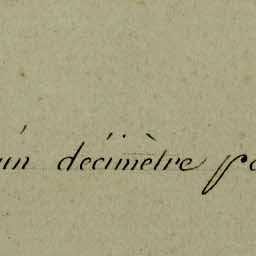 un décimètre